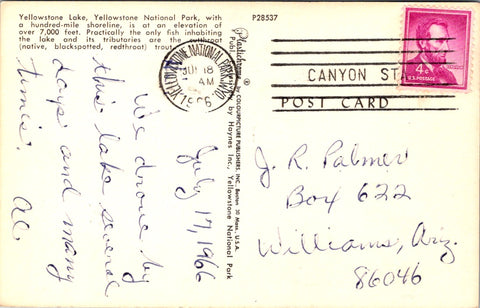 Yellowstone Lake, Yellowstone National Park, with
a hundred-mile shoreline, is at an elevation of
over 7,000 feet. Practically the only fish inhabiting
the lake and its tributaries are the cutthroat
(native, blackspotted, redthroat) trout
P28537
Plastichrome ® by COLOURPICTURE PUBLISHERS, INC., Boston 30, Mass., U.S.A.
Publ. by Haynes Inc., Yellowstone National Park
YELLOWSTONE NATIONAL PARK, WYO
JUL 18
AM
1966
CANYON STA
4¢
U.S. POSTAGE
POST CARD
July 17, 1966
We drove by
this lake several
days and many
times.
Al.
J. R. Palmer
Box 622
Williams, Ariz.
86046